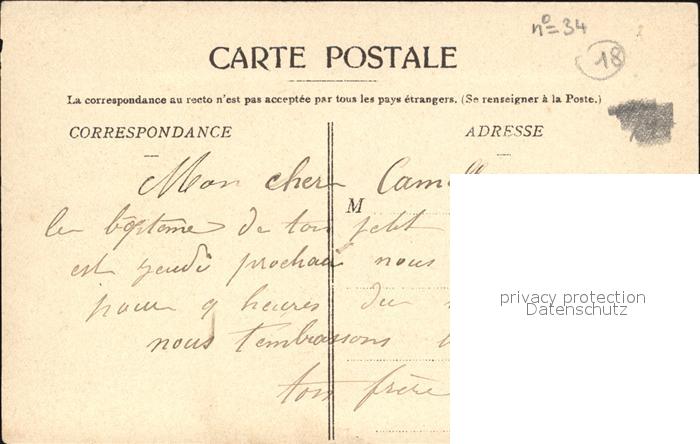 n° = 34
18
CARTE POSTALE
La correspondance au recto n'est pas acceptée par tous les pays étrangers. (Se renseigner à la Poste.)
CORRESPONDANCE
ADRESSE
Mon cher
M
le bâptème de ton petit
est jeudi prochain nous
pour 9 heures du
nous t'embrassons
ton frère
privacy protection
Datenschutz